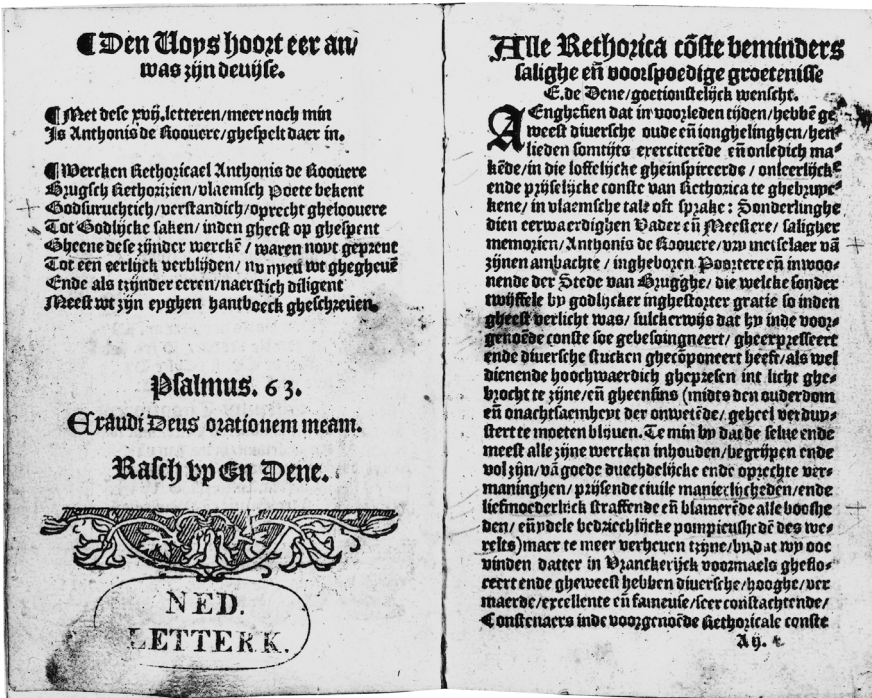 ¶ Den Uoys hoort eer an/
was zijn deuijse.
¶ Met dese xvij. letteren/meer noch min
Is Anthonis de Roouere/ghespelt daer in.
¶ Wercken Rethoricael Anthonis de Roouere
Brugsch Rethorizien/vlaemsch Poete bekent
Godsuruchtich/verstandich/oprecht gheloouere
Tot Godlijcke saken/inden gheest op ghespent
Gheene dese zijnder werckē/waren noyt geprent
Tot een eerlijck verblijden/nu nyeu wt ghegheuē
Ende als tzijnder eeren/naerstich diligent
Meest wt zijn eyghen hantboeck gheschreuen.
Psalmus. 63.
Exaudi Deus orationem meam.
Rasch vp En Dene.
NED.
LETTERK.
Alle Rethorica cōste beminders
salighe eñ voorspoedige groetenisse
E. de Dene/goetionstelijck wenscht.
AEnghesien dat in voorleden tijden/hebbē ge
weest diuersche oude eñ ionghelinghen/hen⸗
lieden somtijts exerciterēde eñ onledich ma⸗
kēde/in die loffelijcke gheinspireerde/onleerlijck⸗
ende prijselijcke conste van Rethorica te ghebruyc⸗
kene/in vlaemsche tale oft sprake: Sonderlinghe
dien eerwaerdighen Vader eñ Meestere/saligher
memorien/Anthonis de Roouere/vry metselaer vā
zijnen ambachte/ingheboren Poortere eñ inwoo⸗
nende der Stede van Brugghe/die welcke sonder
twijffele by godlijcker inghestorter gratie so inden
gheest verlicht was/sulckerwijs dat hy inde voor⸗
genoēde conste soe gebesoingneert/gheexpresseert
ende diuersche stucken ghecōponeert heeft/als wel
dienende hoochwaerdich ghepresen int licht ghe⸗
brocht te zijne/eñ gheensins (midts den ouderdom
eñ onachtsaemheyt der onwetēde/geheel verduy⸗
stert te moeten blijuen. Te min by dat de selue ende
meest alle zijne wercken inhouden/begrijpen ende
vol zijn/vā goede duechdelijcke ende oprechte ver⸗
maninghen/prijsende ciuile manierlijcheden/ende
liefmoederlijck straffende eñ blamerēde alle booshe
den/eñ ydele bedriechlijcke pompieushedē des we⸗
relts) maer te meer verheuen tzijne/by dat wy ooc
vinden datter in Vranckerijck voormaels gheflo⸗
reert ende gheweest hebben diuersche/hooghe/ver
maerde/excellente eñ fameuse/seer constachtende/
Constenaers inde voorgenoēde Rethoricale conste
A ij.